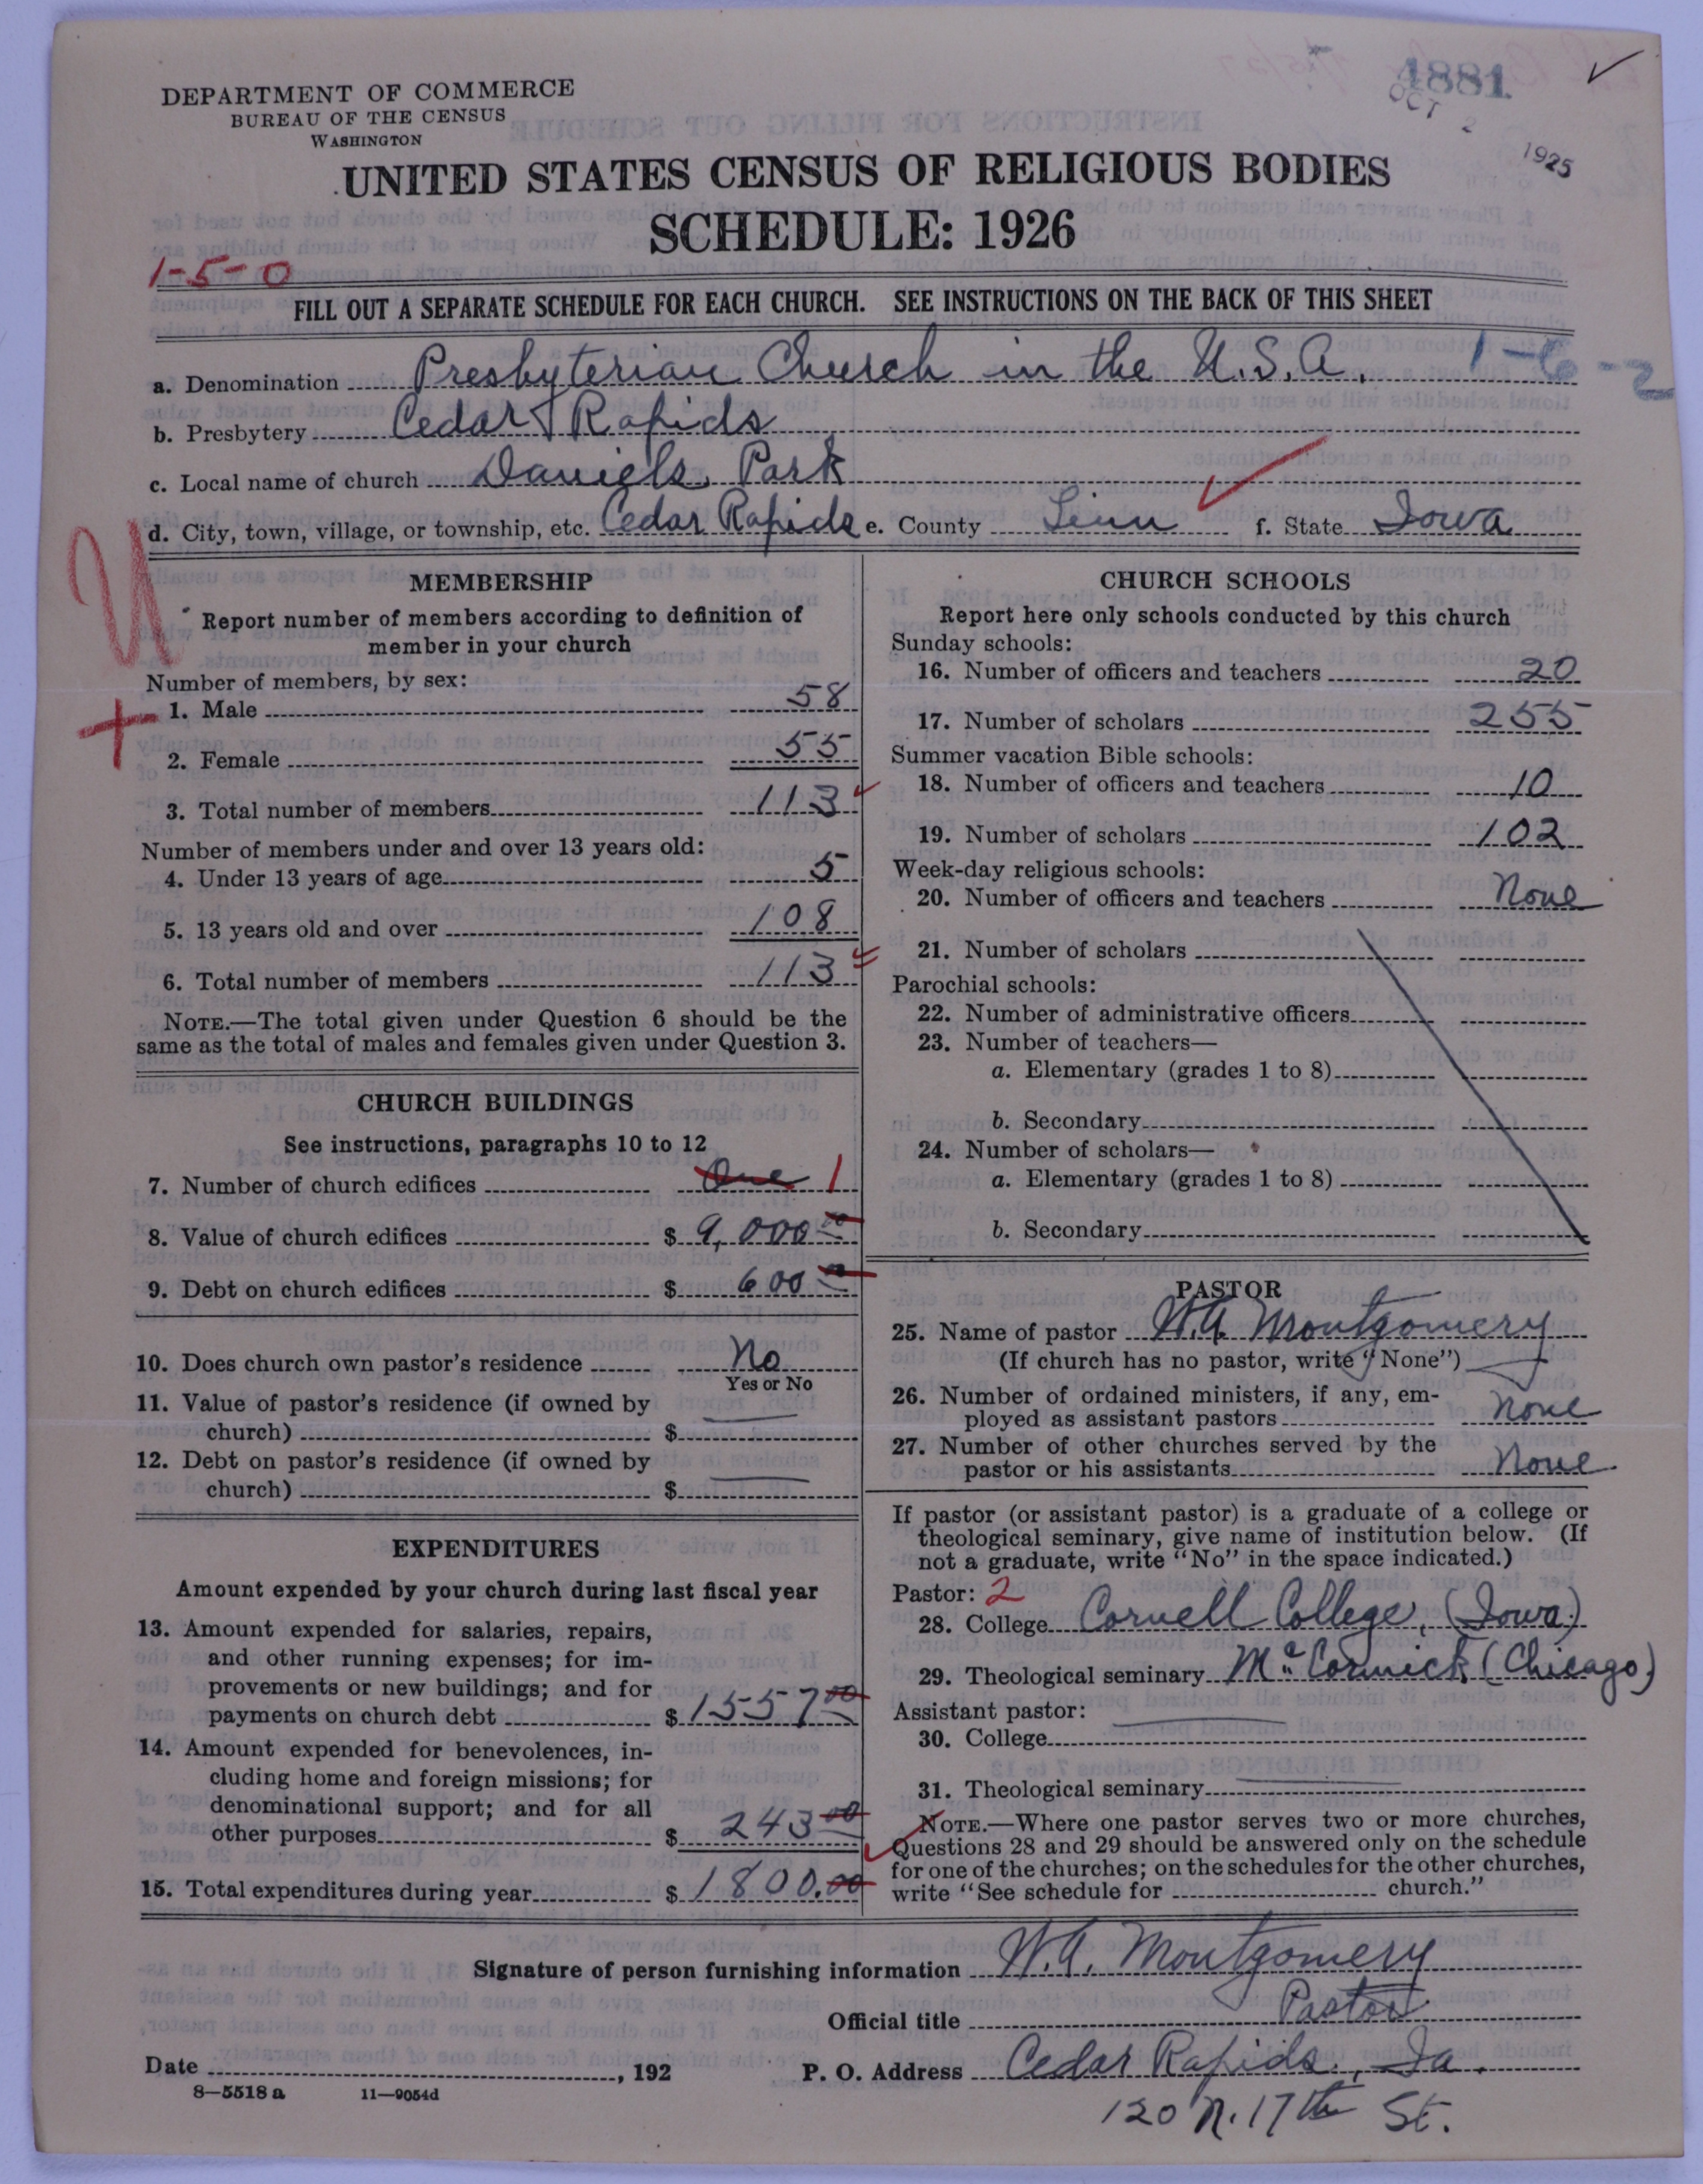 4881
OCT 2 1925
DEPARTMENT OF COMMERCE
BUREAU OF THE CENSUS
WASHINGTON
UNITED STATES CENSUS OF RELIGIOUS BODIES
SCHEDULE: 1926
1-5-0
FILL OUT A SEPARATE SCHEDULE FOR EACH CHURCH. SEE INSTRUCTIONS ON THE BACK OF THIS SHEET
1-6-2
a. Denomination Presbyterian Church in the U.S.A.
b. Presbytery Cedar Rapids
c. Local name of church Daniels Park
d. City, town, village, or township, etc. Cedar Rapids e. County Linn f. State Iowa
U
MEMBERSHIP
Report number of members according to definition of
member in your church
Number of members, by sex:
1. Male 58
2. Female 55
3. Total number of members 113
Number of members under and over 13 years old:
4. Under 13 years of age 5
5. 13 years old and over 108
6. Total number of members 113
NOTE.—The total given under Question 6 should be the
same as the total of males and females given under Question 3.
CHURCH BUILDINGS
See instructions, paragraphs 10 to 12
7. Number of church edifices One 1
8. Value of church edifices $ 9,000 00
9. Debt on church edifices $ 600 00
10. Does church own pastor's residence No
Yes or No
11. Value of pastor's residence (if owned by
church) $
12. Debt on pastor's residence (if owned by
church) $
EXPENDITURES
Amount expended by your church during last fiscal year
13. Amount expended for salaries, repairs,
and other running expenses; for im-
provements or new buildings; and for
payments on church debt $ 1557 00
14. Amount expended for benevolences, in-
cluding home and foreign missions; for
denominational support; and for all
other purposes $ 243 00
15. Total expenditures during year $ 1800.00
CHURCH SCHOOLS
Report here only schools conducted by this church
Sunday schools:
16. Number of officers and teachers 20
17. Number of scholars 255
Summer vacation Bible schools:
18. Number of officers and teachers 10
19. Number of scholars 102
Week-day religious schools:
20. Number of officers and teachers None
21. Number of scholars
Parochial schools:
22. Number of administrative officers
23. Number of teachers—
a. Elementary (grades 1 to 8)
b. Secondary
24. Number of scholars—
a. Elementary (grades 1 to 8)
b. Secondary
PASTOR
25. Name of pastor W.A. Montgomery
(If church has no pastor, write "None")
26. Number of ordained ministers, if any, em-
ployed as assistant pastors None
27. Number of other churches served by the
pastor or his assistants None
If pastor (or assistant pastor) is a graduate of a college or
theological seminary, give name of institution below. (If
not a graduate, write "No" in the space indicated.)
Pastor: 2
28. College Cornell College, (Iowa)
29. Theological seminary McCormick (Chicago)
Assistant pastor:
30. College
31. Theological seminary
NOTE.—Where one pastor serves two or more churches,
Questions 28 and 29 should be answered only on the schedule
for one of the churches; on the schedules for the other churches,
write "See schedule for church."
Signature of person furnishing information W.A. Montgomery
Official title Pastor
Date , 192 P. O. Address Cedar Rapids, Ia.
8—5518 a 11—9054d
120 N. 17th St.